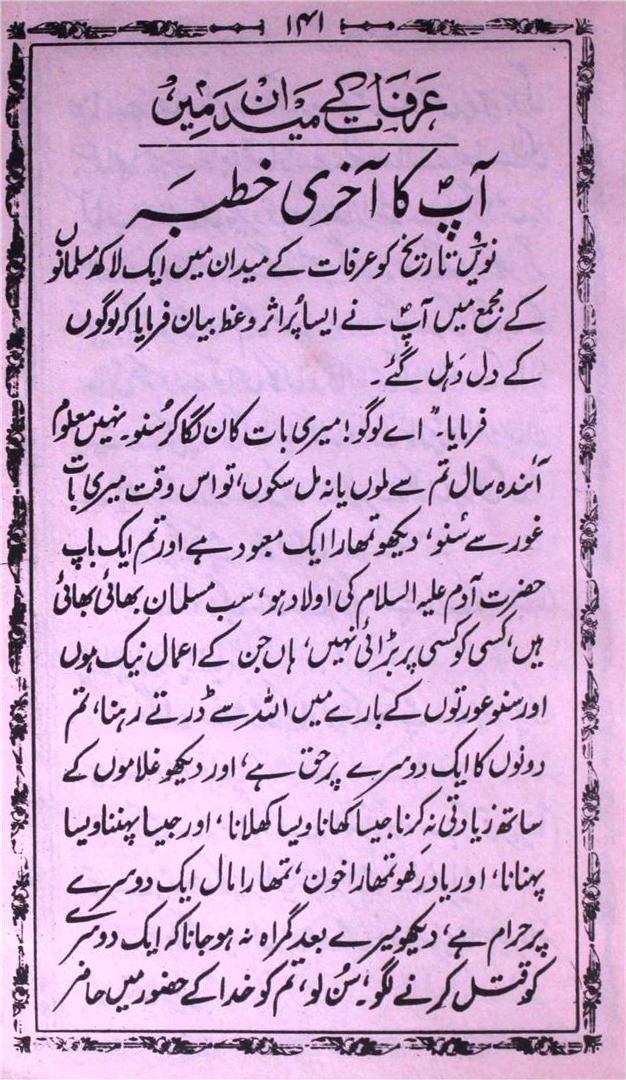 ۱۴۱
عرفات کے میدان میں
آپؐ کا آخری خطبہ
نویں تاریخ کو عرفات کے میدان میں ایک لاکھ مسلمانوں
کے مجمع میں آپؐ نے ایسا پُر اثر وعظ بیان فرمایا کہ لوگوں
کے دل دَہل گئے۔
فرمایا۔ ”اے لوگو! میری بات کان لگا کر سُنو۔ نہیں معلوم
آئندہ سال تم سے ملوں یا نہ مل سکوں، تو اس وقت میری بات
غور سے سُنو، دیکھو تمھارا ایک معبود ہے اور تم ایک باپ
حضرت آدم علیہ السلام کی اولاد ہو، سب مسلمان بھائی بھائی
ہیں، کسی کو کسی پر بڑائی نہیں، ہاں جن کے اعمال نیک ہوں
اور سنو عورتوں کے بارے میں اللہ سے ڈرتے رہنا، تم
دونوں کا ایک دوسرے پر حق ہے، اور دیکھو غلاموں کے
ساتھ زیادتی نہ کرنا جیسا کھانا ویسا کھلانا، اور جیسا پہننا ویسا
پہنانا، اور یاد رکھو تمھارا خون، تمھارا مال ایک دوسرے
پر حرام ہے، دیکھو میرے بعد گمراہ نہ ہو جانا کہ ایک دوسرے
کو قتل کرنے لگو، سُن لو، تم کو خدا کے حضور میں حاضر